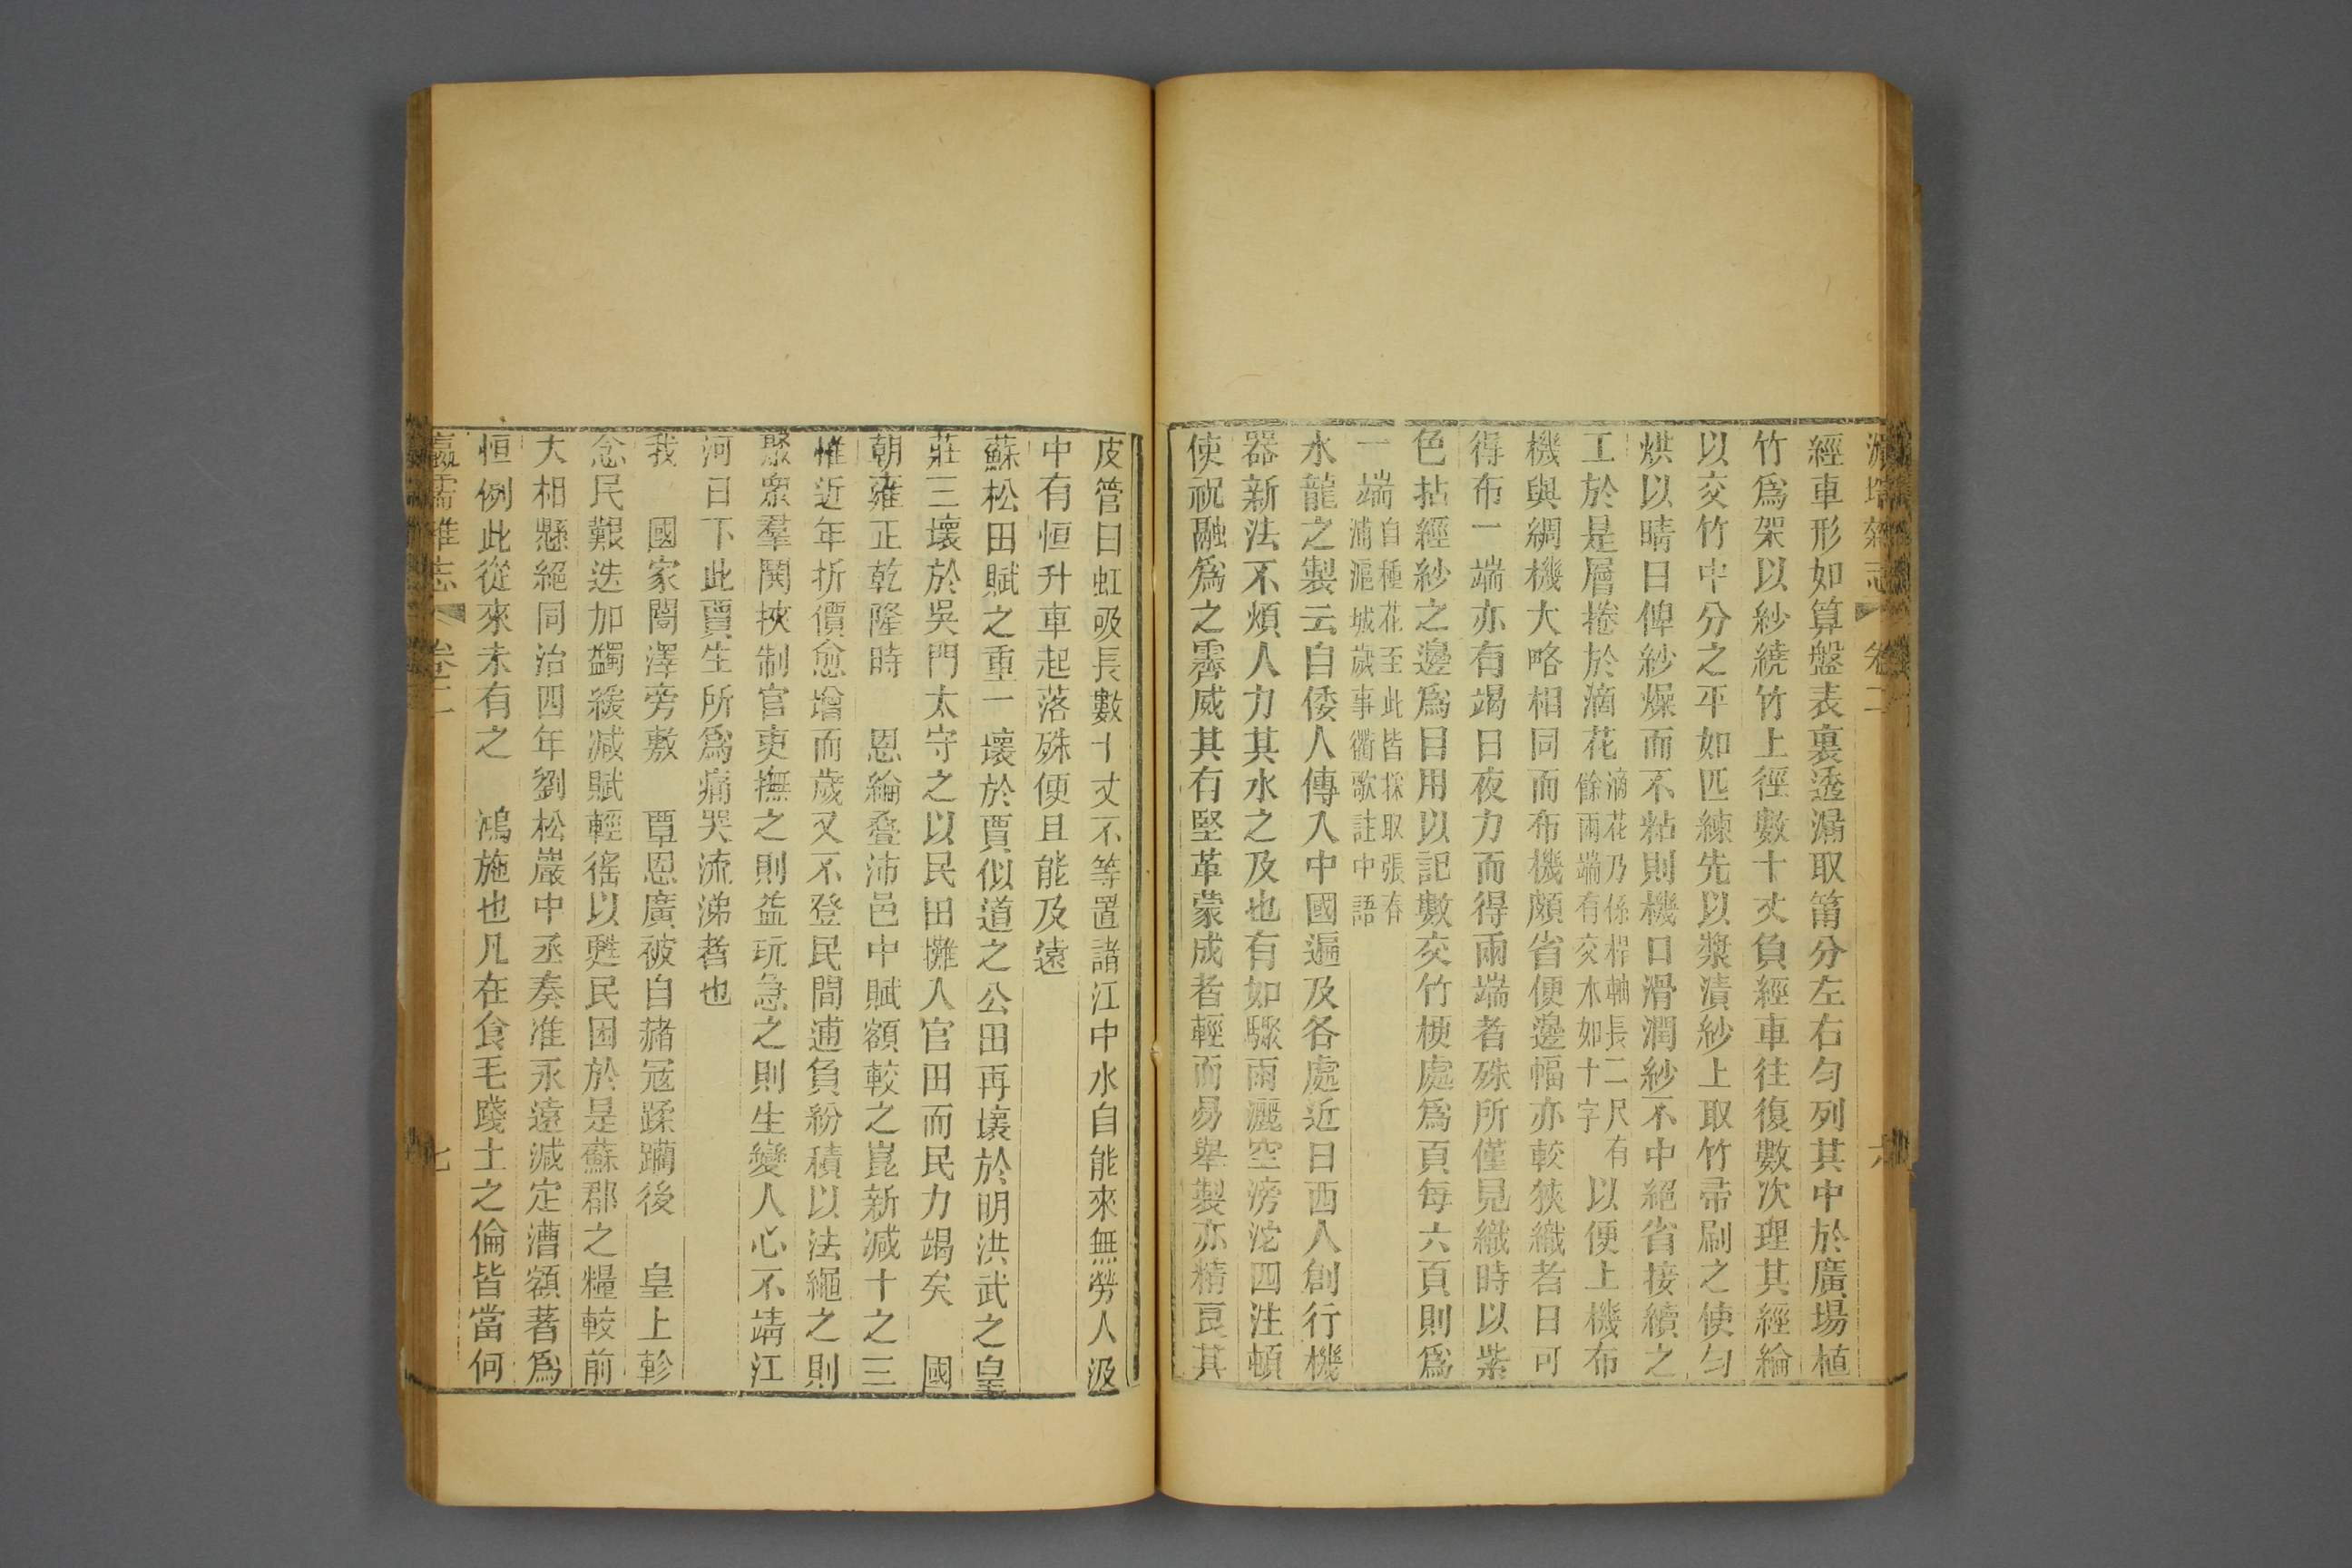 經車形如算盤表裏透漏取筩分左右勻列其中於廣場植
竹爲架以紗繞竹上徑數十丈負經車往復數次理其經綸
以交竹中分之平如匹練先以漿漬紗上取竹帚刷之使勻
烘以晴日俾紗燥而不粘則機口滑潤紗不中絕省接續之
工於是層捲於滴花滴花乃係桿軸長二尺有餘兩端有交木如十字以便上機布
機與綢機大略相同而布機頗省便邊幅亦較狹織者日可
得布一端亦有竭日夜力而得兩端者殊所僅見織時以紫
色拈經紗之邊爲目用以記數交竹梗處爲頁每六頁則爲
一端自種花至此皆採取張春浦滬城歲事衢歌註中語
水龍之製云自倭人傳入中國遍及各處近日西人創行機
器新法不煩人力其水之及也有如驟雨灑空滂沱四注頓
使祝融爲之霽威其有堅革蒙成者輕而易舉製亦精良其
卷二
六
皮管曰虹吸長數十丈不等置諸江中水自能來無勞人汲
中有恒升車起落殊便且能及遠
蘇松田賦之重一壞於賈似道之公田再壞於明洪武之皇
莊三壞於吳門太守之以民田攤人官田而民力竭矣 國
朝雍正乾隆時 恩綸疊沛邑中賦額較之崑新減十之三
惟近年折價愈增而歲又不登民間逋負紛積以法繩之則
聚衆羣鬨挾制官吏撫之則益玩急之則生變人心不靖江
河日下此賈生所爲痛哭流涕者也
我 國家閭澤旁敷 覃恩廣被自赭寇蹂躪後 皇上軫
念民艱迭加蠲緩減賦輕徭以甦民困於是蘇郡之糧較前
大相懸絕同治四年劉松巖中丞奏准永遠減定漕額著爲
恒例此從來未有之 鴻施也凡在食毛踐土之倫皆當何
瀛壖雜志 卷二
七